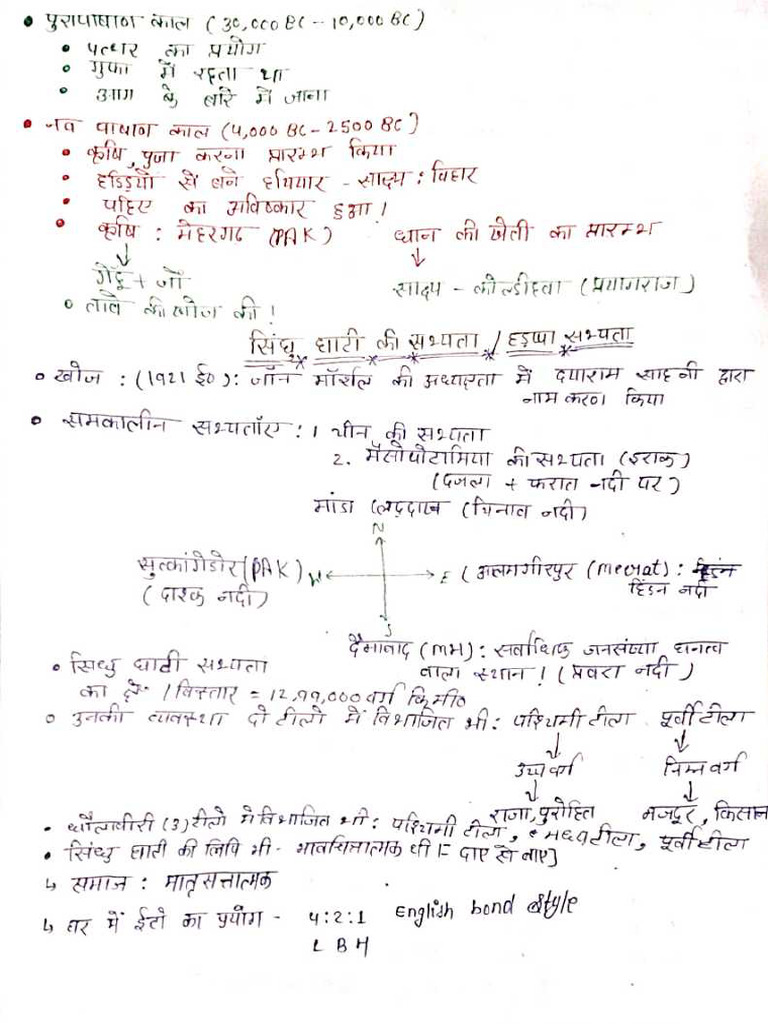 • पुरापाषाण काल (30,000 BC - 10,000 BC)
• पत्थर का प्रयोग
• गुफा में रहता था
• आग के बारे में जाना
• नव पाषाण काल (4,000 BC - 2500 BC)
• कृषि, पुजा करना प्रारम्भ किया
• हडि्डयों से बने हथियार - साक्ष्य : विहार
• पहिए का अविष्कार हुआ।
• कृषि : मेहरगढ (PAK) धान की खेती का प्रारम्भ
↓ ↓
गेंहू + जौं साक्ष्य - कोल्डीहवा (प्रयागराज)
• तांवे की खोज की!
सिंधु घाटी की सभ्यता / हडप्पा सभ्यता
• खोज : (1921 ई०) : जॉन मॉर्शल की अध्यक्षता में दयाराम साहनी द्वारा
नामकरण किया
• समकालीन सभ्यताँए : 1 चीन की सभ्यता
2. मैसोपोटामिया की सभ्यता (इराक)
(दजला + फरात नदी पर)
मांडा (लद्दाख (चिनाव नदी)
N
सुत्कांगेडोर (PAK) W ← → E (आलमगीरपुर (Merat) :
(दाश्क नदी) हिंडन नदी
S
दैमावाद (MH) : सर्वाधिक जनसंख्या घनत्व
• सिंधु घाटी सभ्यता वाला स्थान! (प्रवरा नदी)
का / विस्तार = 12,99,000 वर्ग किमी०
• उनकी व्यवस्था दो टीलो में विभाजित थी : पश्चिमी टीला पूर्वी टीला
↓ ↓
उच्च वर्ग निम्न वर्ग
↓ ↓
राजा, पुरोहित मजदूर, किसान
• धौलावीरा (3) टीलो में विभाजित थी : पश्चिमी टीला, मध्य टीला, पूर्वी टीला
• सिंधु घाटी की लिपि थी - भावचित्रात्मक थी [= दाए से बाए]
↳ समाज : मातृसत्तात्मक
↳ घर में ईटो का प्रयोग - 4:2:1 English bond style
L B H